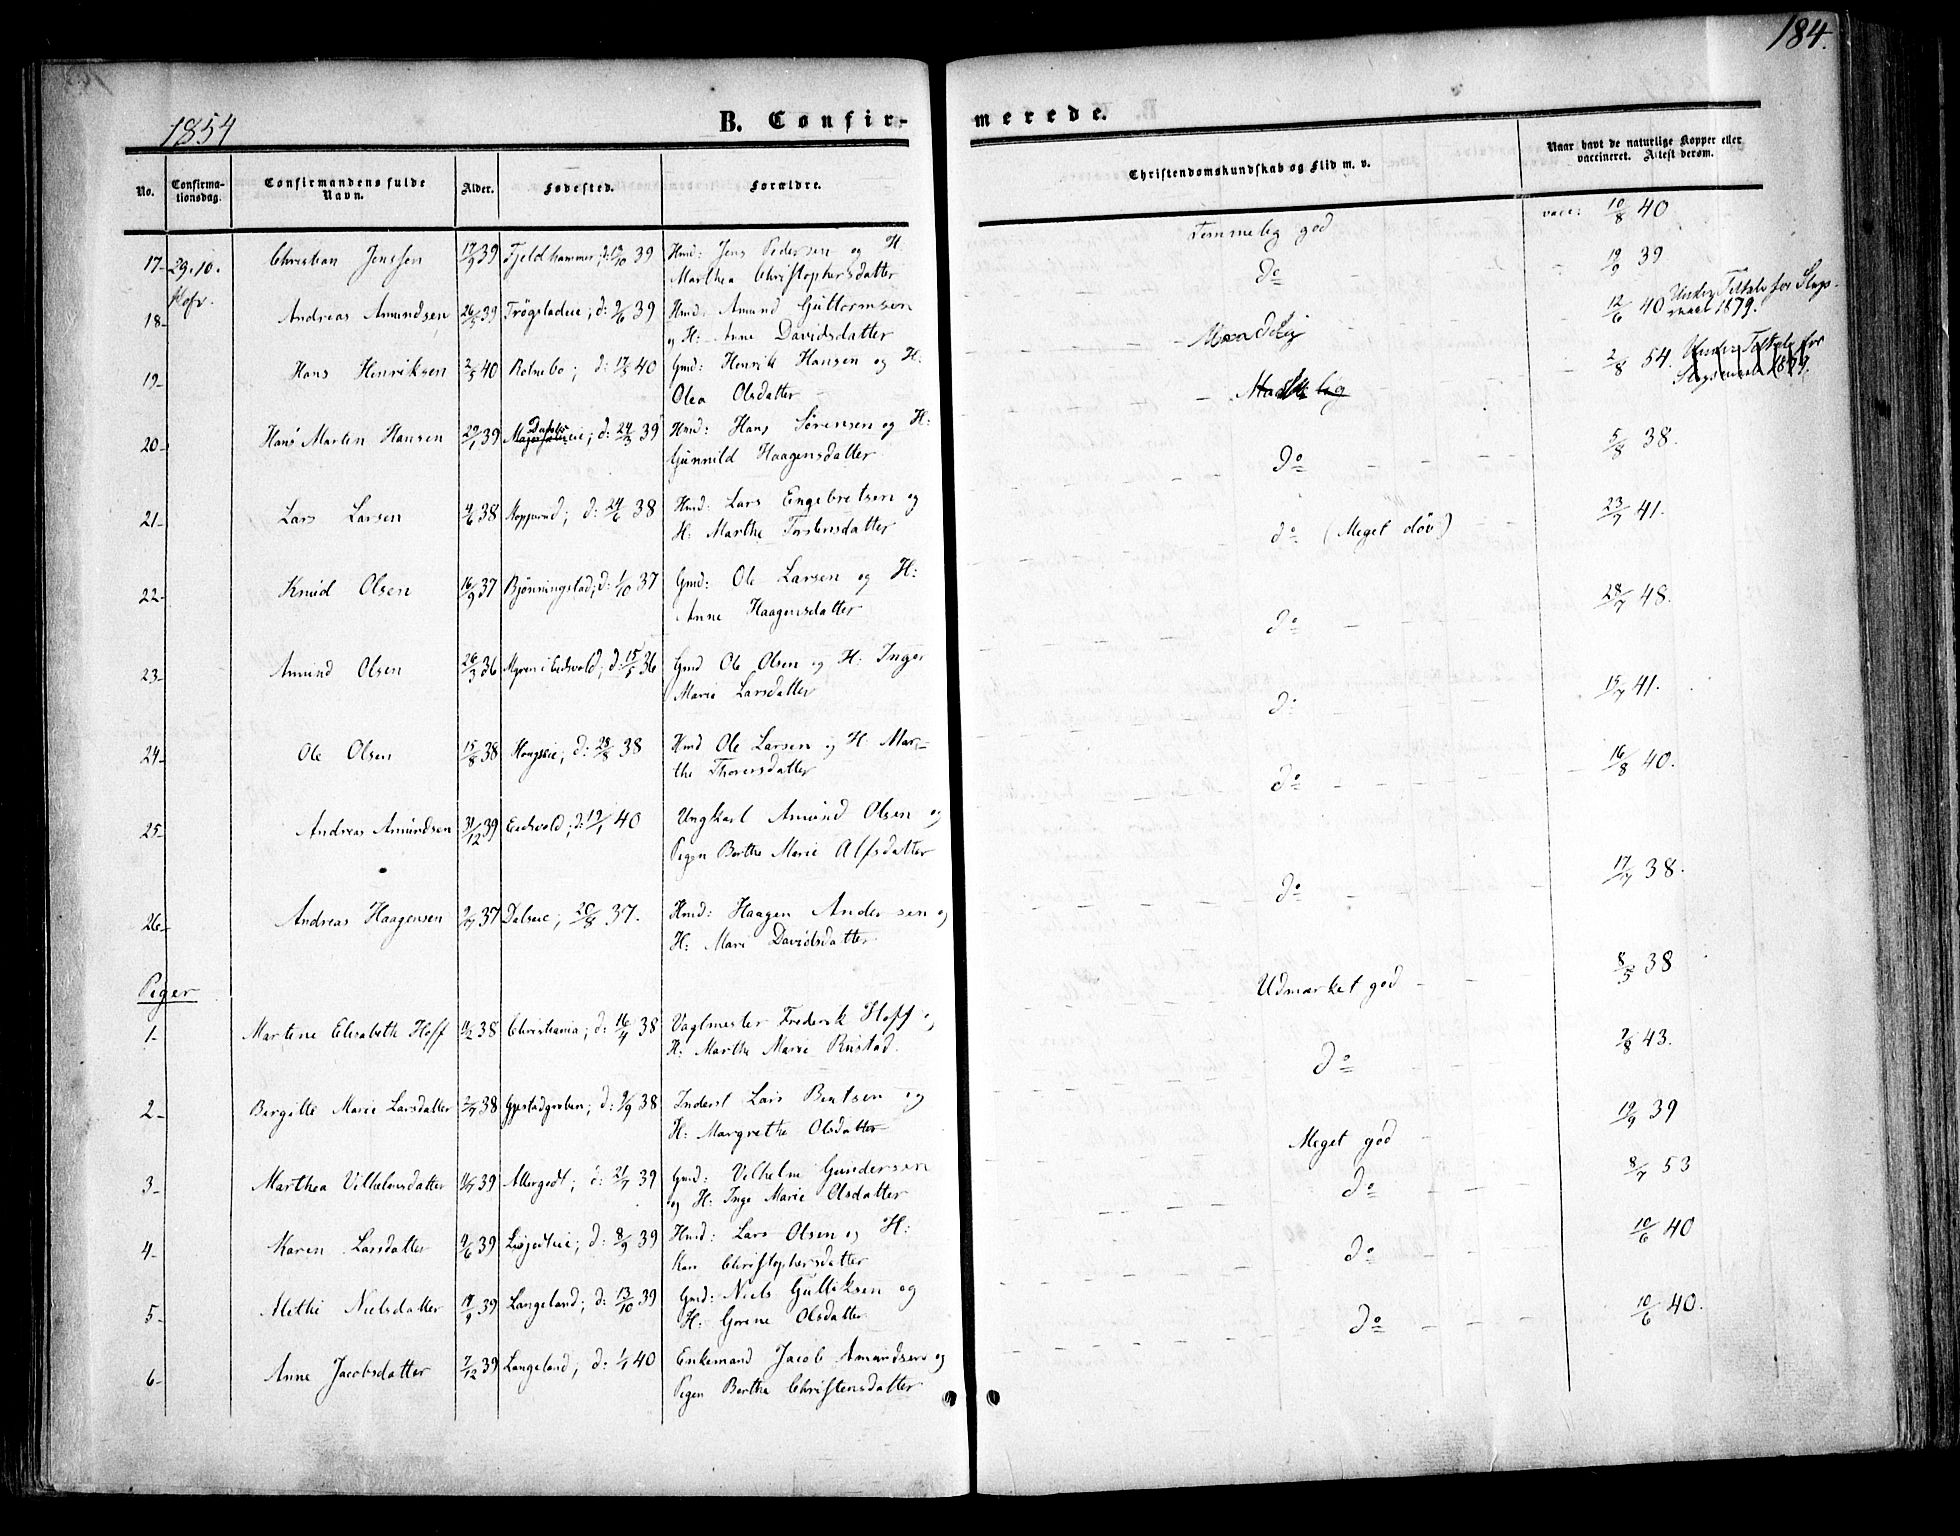 184.
1854
B. Confir-
merede.
No.
Confirma-
tionsdag.
Confirmandens fulde
Navn.
Alder.
Fødested.
Forældre.
Christendomskundskab og Flid m. v.
Naar havt de naturlige Kopper eller
vaccineret. Attest derom.
17- 29.10. Christian Jenssen 17/9 39 Fjeldhammer; d: 13/10 39 Hmd: Jens Pedersen og H.
Marthea Christophersdatter
Temmelig god vacc: 10/8 40
18- Andreas Amundsen 26/5 39 Trøgstadeie; d: 9/6 39 Hmd: Amund Guttormsen
og H: Anne Davidsdatter
do 19/9 39
19- Hans Henriksen 2/5 40 Rolnebo; d: 17/5 40 Gmd: Henrik Hansen og H:
Olea Olsdatter
Maadelig 12/6 40 Under Tiltale for Slags-
maal 1879.
20- Hans Martin Hansen 29/1 39 Dahls eie; d: 24/3 39 Hmd: Hans Sørensen og H:
Gunnild Haagensdatter
Maadelig 2/8 54. Under Tiltale for
Slagsmaal 1879.
21- Lars Larsen 4/6 38 Kopperud; d: 24/6 38 Hmd: Lars Engebretsen og
H: Marthe Torstensdatter
do 5/8 38.
22- Knud Olsen 16/9 37 Bjønningstad; d: 1/10 37 Gmd: Ole Larsen og H:
Anne Haagensdatter
do (Meget døv) 23/7 41.
23- Amund Olsen 26/3 36 Myren i Eidsvold; d: 15/5 36 Gmd Ole Olsen og H: Inger
Marie Larsdatter
do 28/7 48.
24- Ole Olsen 15/8 38 Haugseie; d: 28/8 38 Hmd Ole Larsen og H: Mar-
the Thorersdatter
do 15/7 41.
25- Andreas Amundsen 31/12 39 Eidsvold; d: 19/1 40 Ungkarl Amund Olsen og
Pigen Berthe Marie Alfsdatter
do 16/8 40.
26- Andreas Haagensen 9/7 37 Dalseie; 20/8 37. Hmd: Haagen Andersen og
H: Mari Davidsdatter
do 17/7 38.
Piger
1- Martine Elisabeth Hoff 11/2 38 Christiania; d: 16/4 38 Vagtmester Frederik Hoff og
H: Marthe Marie Rustad.
Udmærket god 8/5 38
2- Birgitte Marie Larsdatter 2/7 38 d: 9/9 38 Inderst Lars Bentsen og
H: Margrethe Olsdatter
do 2/8 43.
3- Marthea Vilhelmsdatter 11/7 39 Altergodt; d: 21/7 39 Gmd: Vilhelm Gundersen
og H: Inge Marie Olsdatter
Meget god 19/9 39
4- Karen Larsdatter 9/6 39 d: 8/9 39 Hmd: Lars Olsen og H:
Kari Christophersdatter
do 8/7 53
5- Methe Nielsdatter 18/9 39 Langeland; d: 13/10 39 Gmd: Niels Gulliksen og
H: Gorine Olsdatter
do 10/6 40
6- Anne Jacobsdatter 7/12 39 Langeland; d: 1/1 40 Enkemand Jacob Amundsen og
Pigen Berthe Christensdatter
do 10/6 40.